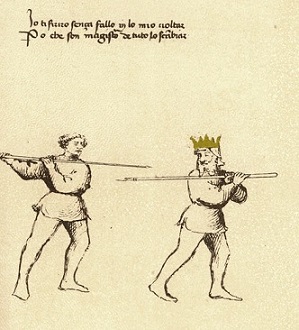 Io ti fiero sença fallo in lo mio voltar
Po che son magistro de tuto lo scrimiar